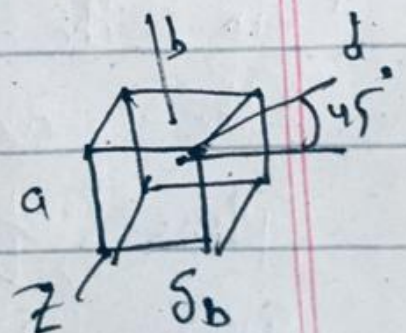 b
d
45°
a
z
δb